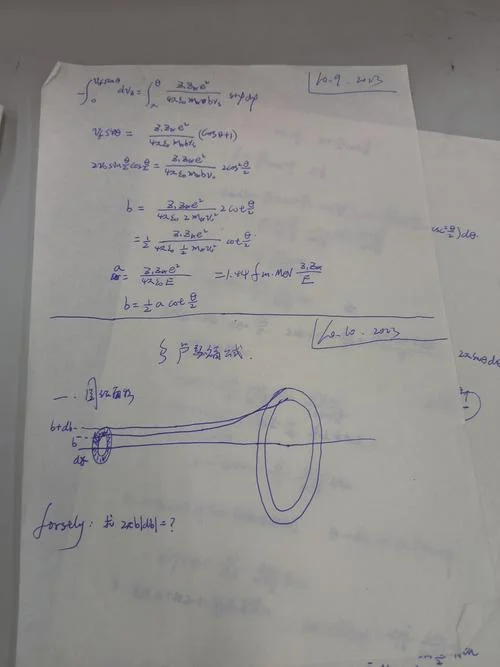 10.9.2023
-∫₀^{v₀sinθ} dv₂ = ∫_π^θ Z₁Z₂e²/(4πε₀ m b v₀) sinφdφ
v₀sinθ = Z₁Z₂e²/(4πε₀ m b v₀) (cosθ+1)
2v₀sin θ/2 cos θ/2 = Z₁Z₂e²/(4πε₀ m b v₀) 2cos² θ/2
b = Z₁Z₂e²/(4πε₀ 2 m v₀²) 2cot θ/2
= 1/2 Z₁Z₂e²/(4πε₀ 1/2 m v₀²) cot θ/2
a = Z₁Z₂e²/(4πε₀E) = 1.44 fm·MeV Z₁Z₂/E
b = 1/2 a cot θ/2
10.10.2023
§ 卢瑟福公式.
一.
b+db
b
firstly: 求 2πb|db| = ?
csc² θ/2)dθ.
2πsinθdθ